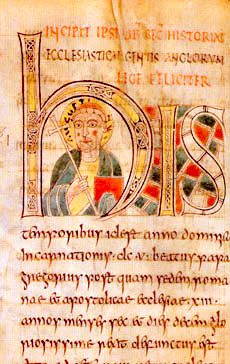 INCIPIT IPSIUS LIB SEC HISTORIAE
ECCLESIASTICAE GENTIS ANGLORUM
LEGE FELICITER
HIS
temporibus id est anno domini
incarnationis dc u beatus papa
gregorius post quam sedem roma
nae et apostolicae ecclesiae xiii
annos menses sex et dies decem glo
riosissime rexit defunctus est